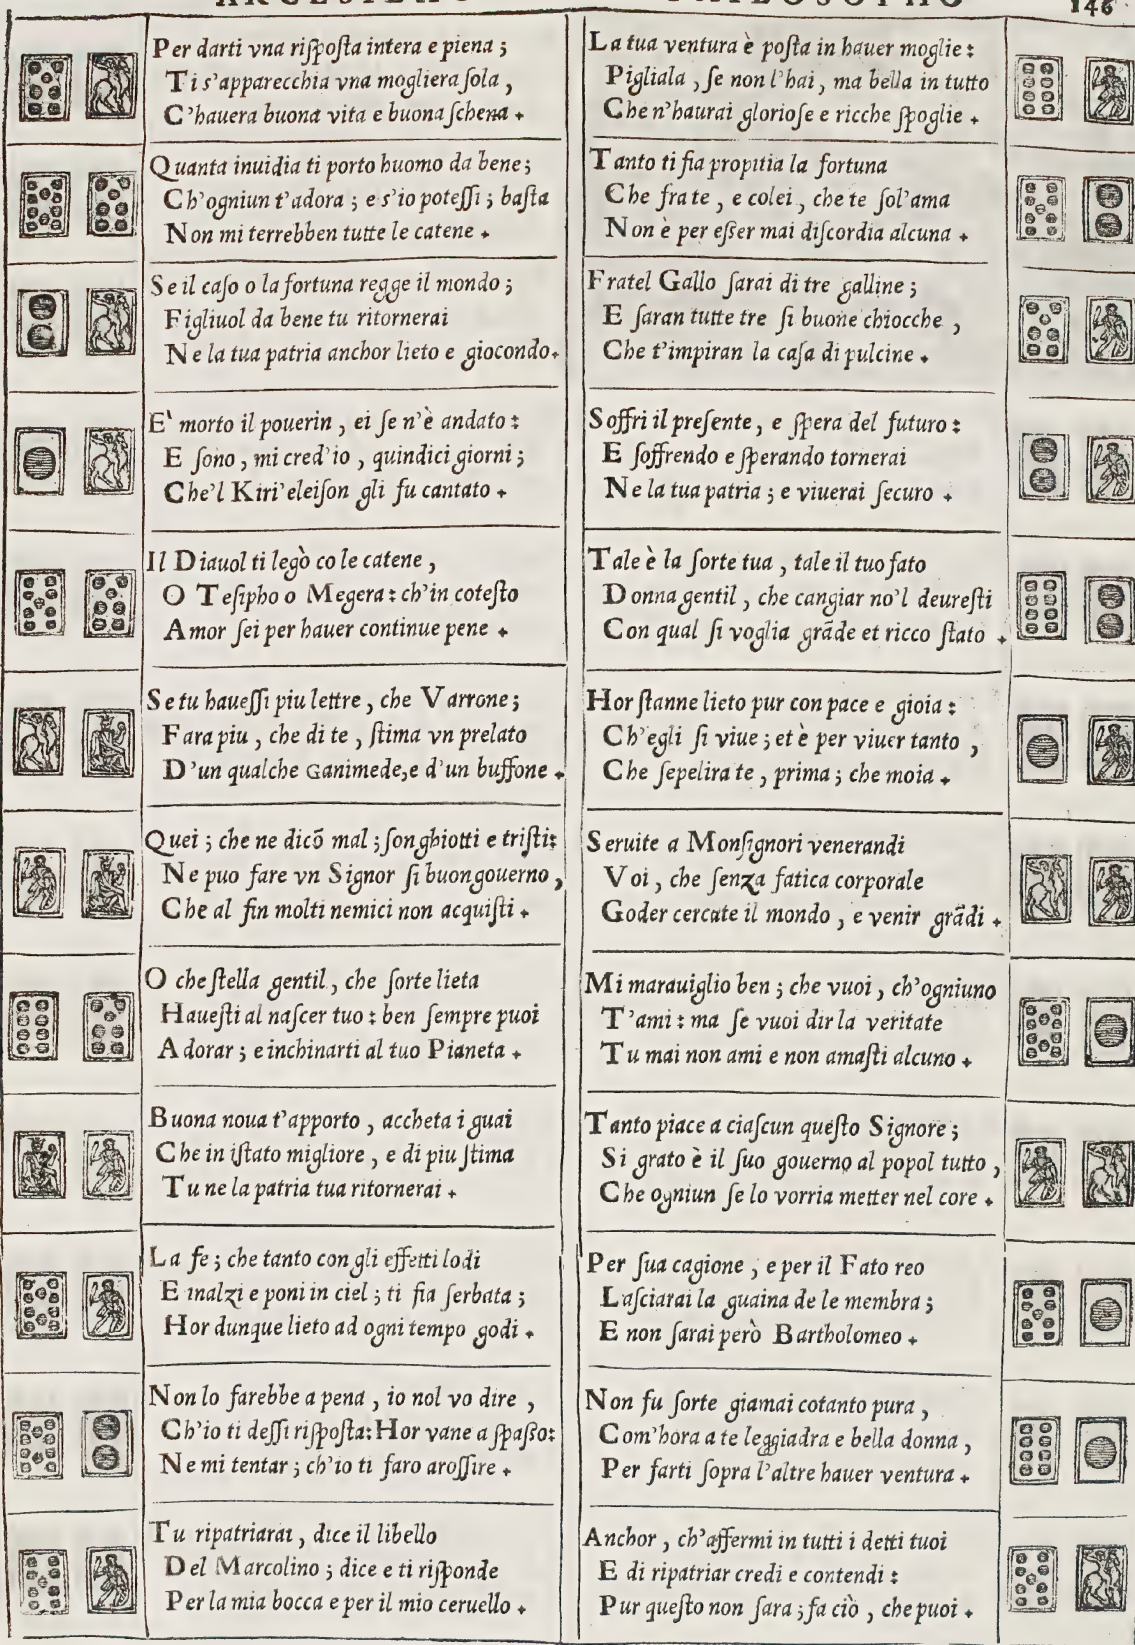 146
Per darti vna riſpoſta intera e piena ;
Ti s'apparecchia vna mogliera ſola ,
C'hauera buona vita e buona ſchena .
Quanta inuidia ti porto huomo da bene ;
Ch'ogniun t'adora ; e s'io poteſſi ; baſta
Non mi terrebben tutte le catene .
Se il caſo o la fortuna regge il mondo ;
Figliuol da bene tu ritornerai
Ne la tua patria anchor lieto e giocondo .
E' morto il pouerin , ei ſe n'è andato :
E ſono , mi cred'io , quindici giorni ;
Che'l Kiri'eleiſon gli fu cantato .
Il Diauol ti legò co le catene ,
O Teſipho o Megera : ch'in coteſto
Amor ſei per hauer continue pene .
Se tu haueſſi piu lettre , che Varrone ;
Fara piu , che di te , ſtima vn prelato
D'un qualche Ganimede, e d'un buffone .
Quei ; che ne dicõ mal ; ſon ghiotti e triſti :
Ne puo fare vn Signor ſi buon gouerno ,
Che al fin molti nemici non acquiſti .
O che ſtella gentil , che ſorte lieta
Haueſti al naſcer tuo : ben ſempre puoi
Adorar ; e inchinarti al tuo Pianeta .
Buona noua t'apporto , accheta i guai
Che in iſtato migliore , e di piu ſtima
Tu ne la patria tua ritornerai .
La fe ; che tanto con gli effetti lodi
E inalzi e poni in ciel ; ti fia ſerbata ;
Hor dunque lieto ad ogni tempo godi .
Non lo farebbe a pena , io nol vo dire ,
Ch'io ti deſſi riſpoſta : Hor vane a ſpaſſo :
Ne mi tentar ; ch'io ti faro aroſſire .
Tu ripatriarai , dice il libello
Del Marcolino ; dice e ti riſponde
Per la mia bocca e per il mio ceruello .
La tua ventura è poſta in hauer moglie :
Pigliala , ſe non l'hai , ma bella in tutto
Che n'haurai glorioſe e ricche ſpoglie .
Tanto ti fia propitia la fortuna
Che fra te , e colei , che te ſol'ama
Non è per eſſer mai diſcordia alcuna .
Fratel Gallo ſarai di tre galline ;
E ſaran tutte tre ſi buone chiocche ,
Che t'impiran la caſa di pulcine .
Soffri il preſente , e ſpera del futuro :
E ſoffrendo e ſperando tornerai
Ne la tua patria ; e viuerai ſecuro .
Tale è la ſorte tua , tale il tuo fato
Donna gentil , che cangiar no'l deureſti
Con qual ſi voglia grãde et ricco ſtato .
Hor ſtanne lieto pur con pace e gioia :
Ch'egli ſi viue ; et è per viuer tanto ,
Che ſepelira te , prima ; che moia .
Seruite a Monſignori venerandi
Voi , che ſenza fatica corporale
Goder cercate il mondo , e venir grãdi .
Mi marauiglio ben ; che vuoi , ch'ogniuno
T'ami : ma ſe vuoi dir la veritate
Tu mai non ami e non amaſti alcuno .
Tanto piace a ciaſcun queſto Signore ;
Si grato è il ſuo gouerno al popol tutto ,
Che ogniun ſe lo vorria metter nel core .
Per ſua cagione , e per il Fato reo
Laſciarai la guaina de le membra ;
E non ſarai però Bartholomeo .
Non fu ſorte giamai cotanto pura ,
Com'hora a te leggiadra e bella donna ,
Per farti ſopra l'altre hauer ventura .
Anchor , ch'affermi in tutti i detti tuoi
E di ripatriar credi e contendi :
Pur queſto non ſara ; fa ciò , che puoi .